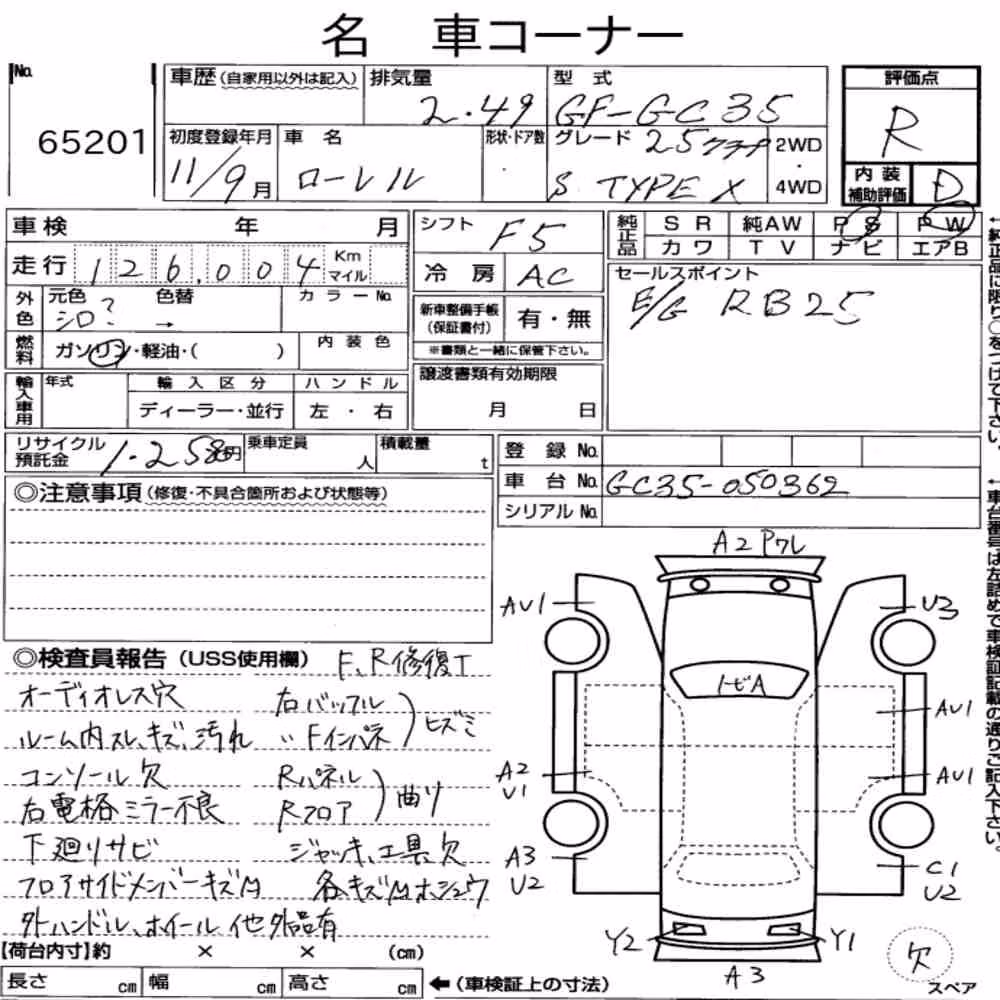 名 車コーナー
No.
65201
車歴(自家用以外は記入)
排気量
2.49
型 式
GF-GC35
評価点
R
初度登録年月
11/9月
車 名
ローレル
形状・ドア数
グレード 25クラブ
S TYPE X
2WD
・
4WD
内 装
補助評価
D
車検 年 月
走行 126,004 Km
マイル
外色
元色 色替 カラーNo.
シロ? →
燃料
ガソリン・軽油・( )
内 装 色
輸入車用
年式
輸 入 区 分
ディーラー・並行
ハ ン ド ル
左 ・ 右
シフト F5
冷 房 AC
新車整備手帳
(保証書付)
有・無
※書類と一緒に保管下さい。
譲渡書類有効期限
月 日
純正品
SR 純AW PS PW
カワ TV ナビ エアB
セールスポイント
E/G RB25
←純正品に限り○をつけて下さい。
リサイクル
預託金
1.258円
乗車定員
人
積載量
t
登 録 No.
車 台 No. GC35-050362
シリアル No.
←車台番号は左詰めで車検証記載の通りご記入下さい。
◎注意事項(修復・不具合箇所および状態等)
◎検査員報告(USS使用欄) F、R修復エ
オーディオレス穴 右バッフル
ルーム内スレ、キズ、汚れ 〃Fインパネ ヒズミ
コンソール欠 Rパネル
右電格ミラー不良 Rフロア 曲り
下廻りサビ ジャッキ、工具、欠
フロアサイドメンバーキズM 各キズMホシュウ
外ハンドル、ホイール他外品有
【荷台内寸】約 × × (cm)
長さ cm 幅 cm 高さ cm ←(車検証上の寸法)
A2 Pワレ
AU1
U3
トビA
AU1
A2
U1
AU1
A3
U2
C1
U2
Y2
Y1
A3
欠
スペア